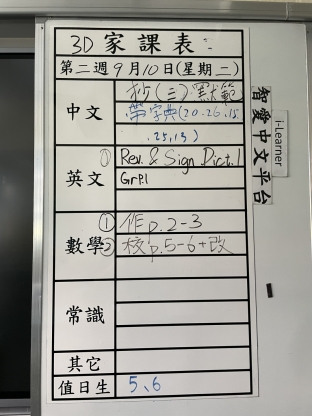 3D 家課表
第二週 9 月 10 日(星期 二)
中文
抄(三)默範
帶字典(20-26,15
,25,13)
英文
① Rev. & Sign Dict.1
Grp.1
數學
① 作 p.2-3
② 校 p.5-6+改
常識
其它
值日生
5、6
智愛中文平台
i-Learner